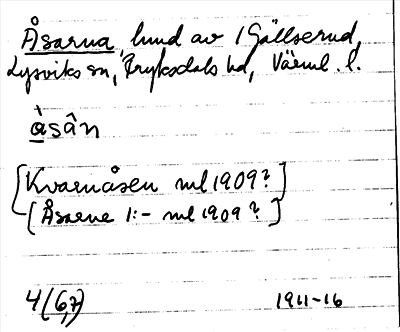 Åsarna, lund av 1 Gällserud,
Lysviks sn, Fryksdals hd, Värml. l.
àsân
[Kvarnåsen ml 1909?]
[Åsarne 1:- ml 1909?]
4(6,7) 1911-16